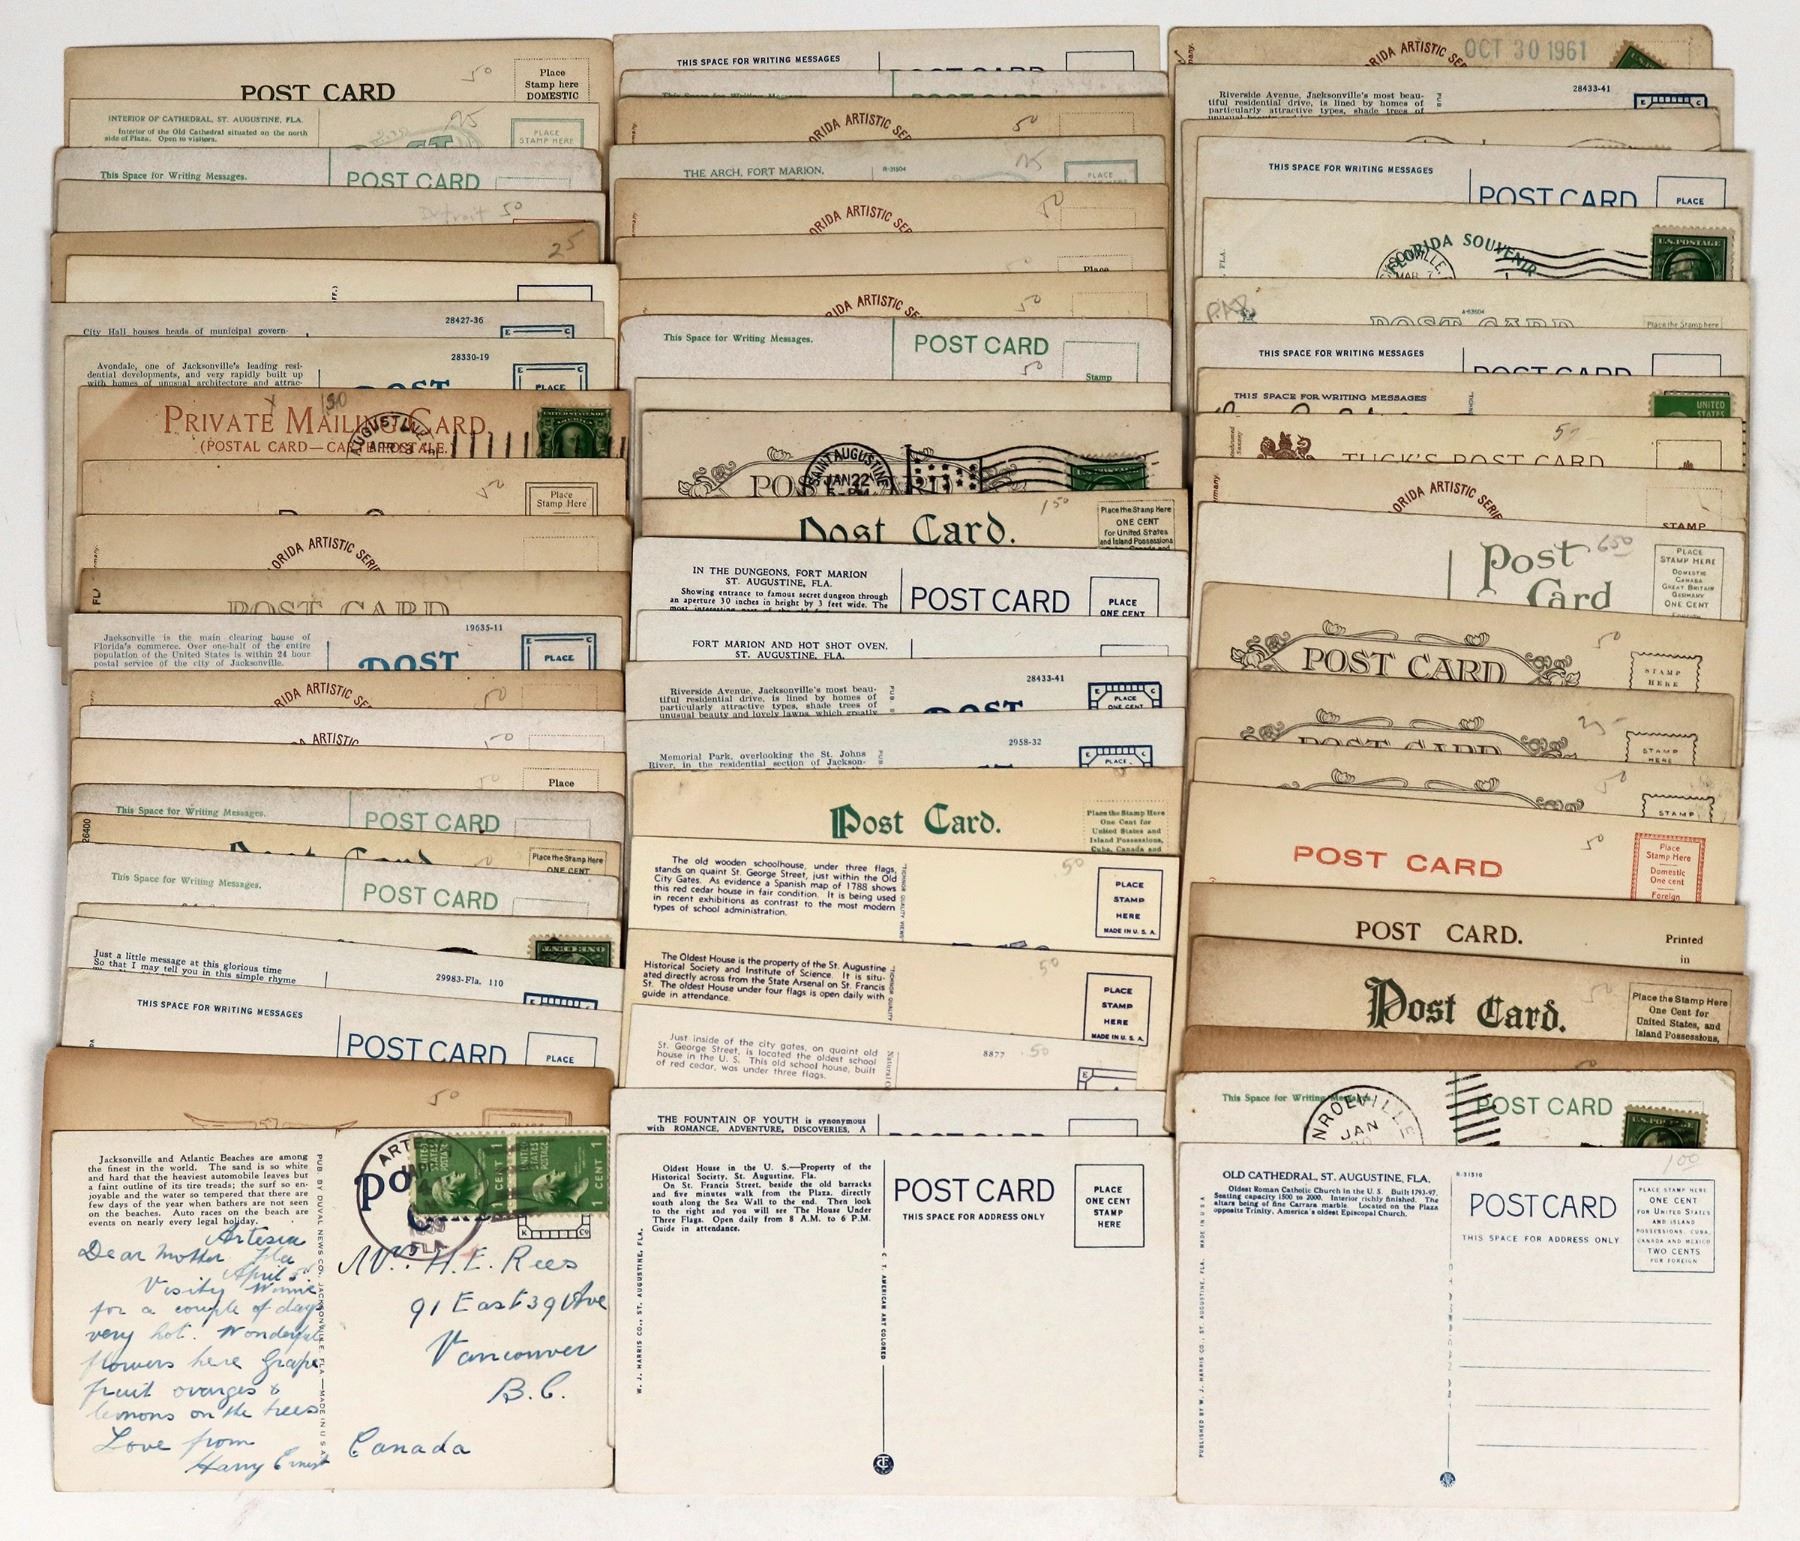 POST CARD
50
Place
Stamp here
DOMESTIC
INTERIOR OF CATHEDRAL, ST. AUGUSTINE, FLA.
Interior of the Old Cathedral situated on the north
side of Plaza. Open to visitors.
PLACE
STAMP HERE
This Space for Writing Messages.
POST CARD
Detroit 50
25
City Hall houses heads of municipal govern-
28427-36
Avondale, one of Jacksonville's leading resi-
dential developments, and very rapidly built up
with homes of unusual architecture and attrac-
28330-19
POST
PLACE
PRIVATE MAILING CARD.
(POSTAL CARD—CARTE POSTALE.
50
Place
Stamp Here
ORIDA ARTISTIC SERIE
POST CARD
Jacksonville is the main clearing house of
Florida's commerce. Over one-half of the entire
population of the United States is within 24 hour
postal service of the city of Jacksonville.
19635-11
POST
PLACE
RIDA ARTISTIC SER
50
DA ARTISTIC
50
50
Place
This Space for Writing Messages.
POST CARD
26400
Post Card
Place the Stamp Here
ONE CENT
This Space for Writing Messages.
POST CARD
Just a little message at this glorious time
So that I may tell you in this simple rhyme
29983-Fla. 110
THIS SPACE FOR WRITING MESSAGES
POST CARD
PLACE
50
Jacksonville and Atlantic Beaches are among
the finest in the world. The sand is so white
and hard that the heaviest automobile leaves but
a faint outline of its tire treads; the surf so en-
joyable and the water so tempered that there are
few days of the year when bathers are not seen
on the beaches. Auto races on the beach are
events on nearly every legal holiday.
PUB. BY DUVAL NEWS CO., JACKSONVILLE, FLA.—MADE IN U.S.A.
1 CENT
FLA.
Artesia
Fla
April 5
Dear Mother
Visity Winnie
for a couple of days
very hot. Wonderful
flowers here Grape
fruit oranges &
lemons on the trees
Love from
Harry Ernest
H. E. Rees
91 East 39 Ave
Vancouver
B.C.
Canada
THIS SPACE FOR WRITING MESSAGES
POST CARD
ORIDA ARTISTIC SER
50
THE ARCH, FORT MARION,
R-31504
PLACE
ORIDA ARTISTIC SER
50
Place
RIDA ARTISTIC SE
50
This Space for Writing Messages.
POST CARD
50
Stamp
POST CARD
SAINT AUGUSTINE
JAN 22
5-PM
Post Card.
150
Place the Stamp Here
ONE CENT
for United States
and Island Possessions
IN THE DUNGEONS, FORT MARION
ST. AUGUSTINE, FLA.
Showing entrance to famous secret dungeon through
an aperture 30 inches in height by 3 feet wide. The
POST CARD
PLACE
ONE CENT
FORT MARION AND HOT SHOT OVEN,
ST. AUGUSTINE, FLA.
Riverside Avenue, Jacksonville's most beau-
tiful residential drive, is lined by homes of
particularly attractive types, shade trees of
unusual beauty and lovely lawns, which greatly
28433-41
POST
PLACE
ONE CENT
Memorial Park, overlooking the St. Johns
River, in the residential section of Jackson-
2958-32
PLACE
Post Card.
Place the Stamp Here
One Cent for
United States and
Island Possessions,
Cuba, Canada and
The old wooden schoolhouse, under three flags,
stands on quaint St. George Street, just within the Old
City Gates. As evidence a Spanish map of 1788 shows
this red cedar house in fair condition. It is being used
in recent exhibitions as contrast to the most modern
types of school administration.
TICHNOR QUALITY VIEWS
50
PLACE
STAMP
HERE
MADE IN U. S. A.
The Oldest House is the property of the St. Augustine
Historical Society and Institute of Science. It is situ-
ated directly across from the State Arsenal on St. Francis
St. The oldest House under four flags is open daily with
guide in attendance.
TICHNOR QUALITY
50
PLACE
STAMP
HERE
MADE IN U. S. A.
Just inside of the city gates, on quaint old
St. George Street, is located the oldest school
house in the U. S. This old school house, built
of red cedar, was under three flags.
8877
50
THE FOUNTAIN OF YOUTH is synonymous
with ROMANCE, ADVENTURE, DISCOVERIES, A
Oldest House in the U. S.—Property of the
Historical Society, St. Augustine, Fla.
On St. Francis Street, beside the old barracks
and five minutes walk from the Plaza, directly
south along the Sea Wall to the end. Then look
to the right and you will see The House Under
Three Flags. Open daily from 8 A.M. to 6 P.M.
Guide in attendance.
POST CARD
THIS SPACE FOR ADDRESS ONLY
PLACE
ONE CENT
STAMP
HERE
W. J. HARRIS CO., ST. AUGUSTINE, FLA.
C. T. AMERICAN ART COLORED
RIDA ARTISTIC SE
OCT 30 1961
Riverside Avenue, Jacksonville's most beau-
tiful residential drive, is lined by homes of
particularly attractive types, shade trees of
28433-41
THIS SPACE FOR WRITING MESSAGES
POST CARD
PLACE
FLORIDA SOUVENIR
MAR 7
U.S. POSTAGE
POST CARD
Place the Stamp here
THIS SPACE FOR WRITING MESSAGES
POST CARD
THIS SPACE FOR WRITING MESSAGES
UNITED
STATES
TUCK'S POST CARD
ORIDA ARTISTIC SERIE
STAMP
Post
Card
650
PLACE
STAMP HERE
DOMESTIC
CANADA
GREAT BRITAIN
GERMANY
ONE CENT
POST CARD
50
STAMP
HERE
POST CARD
25
STAMP
HERE
50
STAMP
POST CARD
50
Place
Stamp Here
Domestic
One cent
Foreign
POST CARD.
Printed
in
Post Card.
50
Place the Stamp Here
One Cent for
United States, and
Island Possessions,
50
This Space for Writing Messages.
POST CARD
NROEVILLE
JAN
OLD CATHEDRAL, ST. AUGUSTINE, FLA.
Oldest Roman Catholic Church in the U. S. Built 1793-97.
Seating capacity 1500 to 2000. Interior richly finished. The
altars being of fine Carrara marble. Located on the Plaza
opposite Trinity, America's oldest Episcopal Church.
R-31510
100
POST CARD
THIS SPACE FOR ADDRESS ONLY
PLACE STAMP HERE
ONE CENT
FOR UNITED STATES
AND ISLAND
POSSESSIONS, CUBA,
CANADA AND MEXICO
TWO CENTS
FOR FOREIGN
PUBLISHED BY W. J. HARRIS CO., ST. AUGUSTINE, FLA. MADE IN U S A